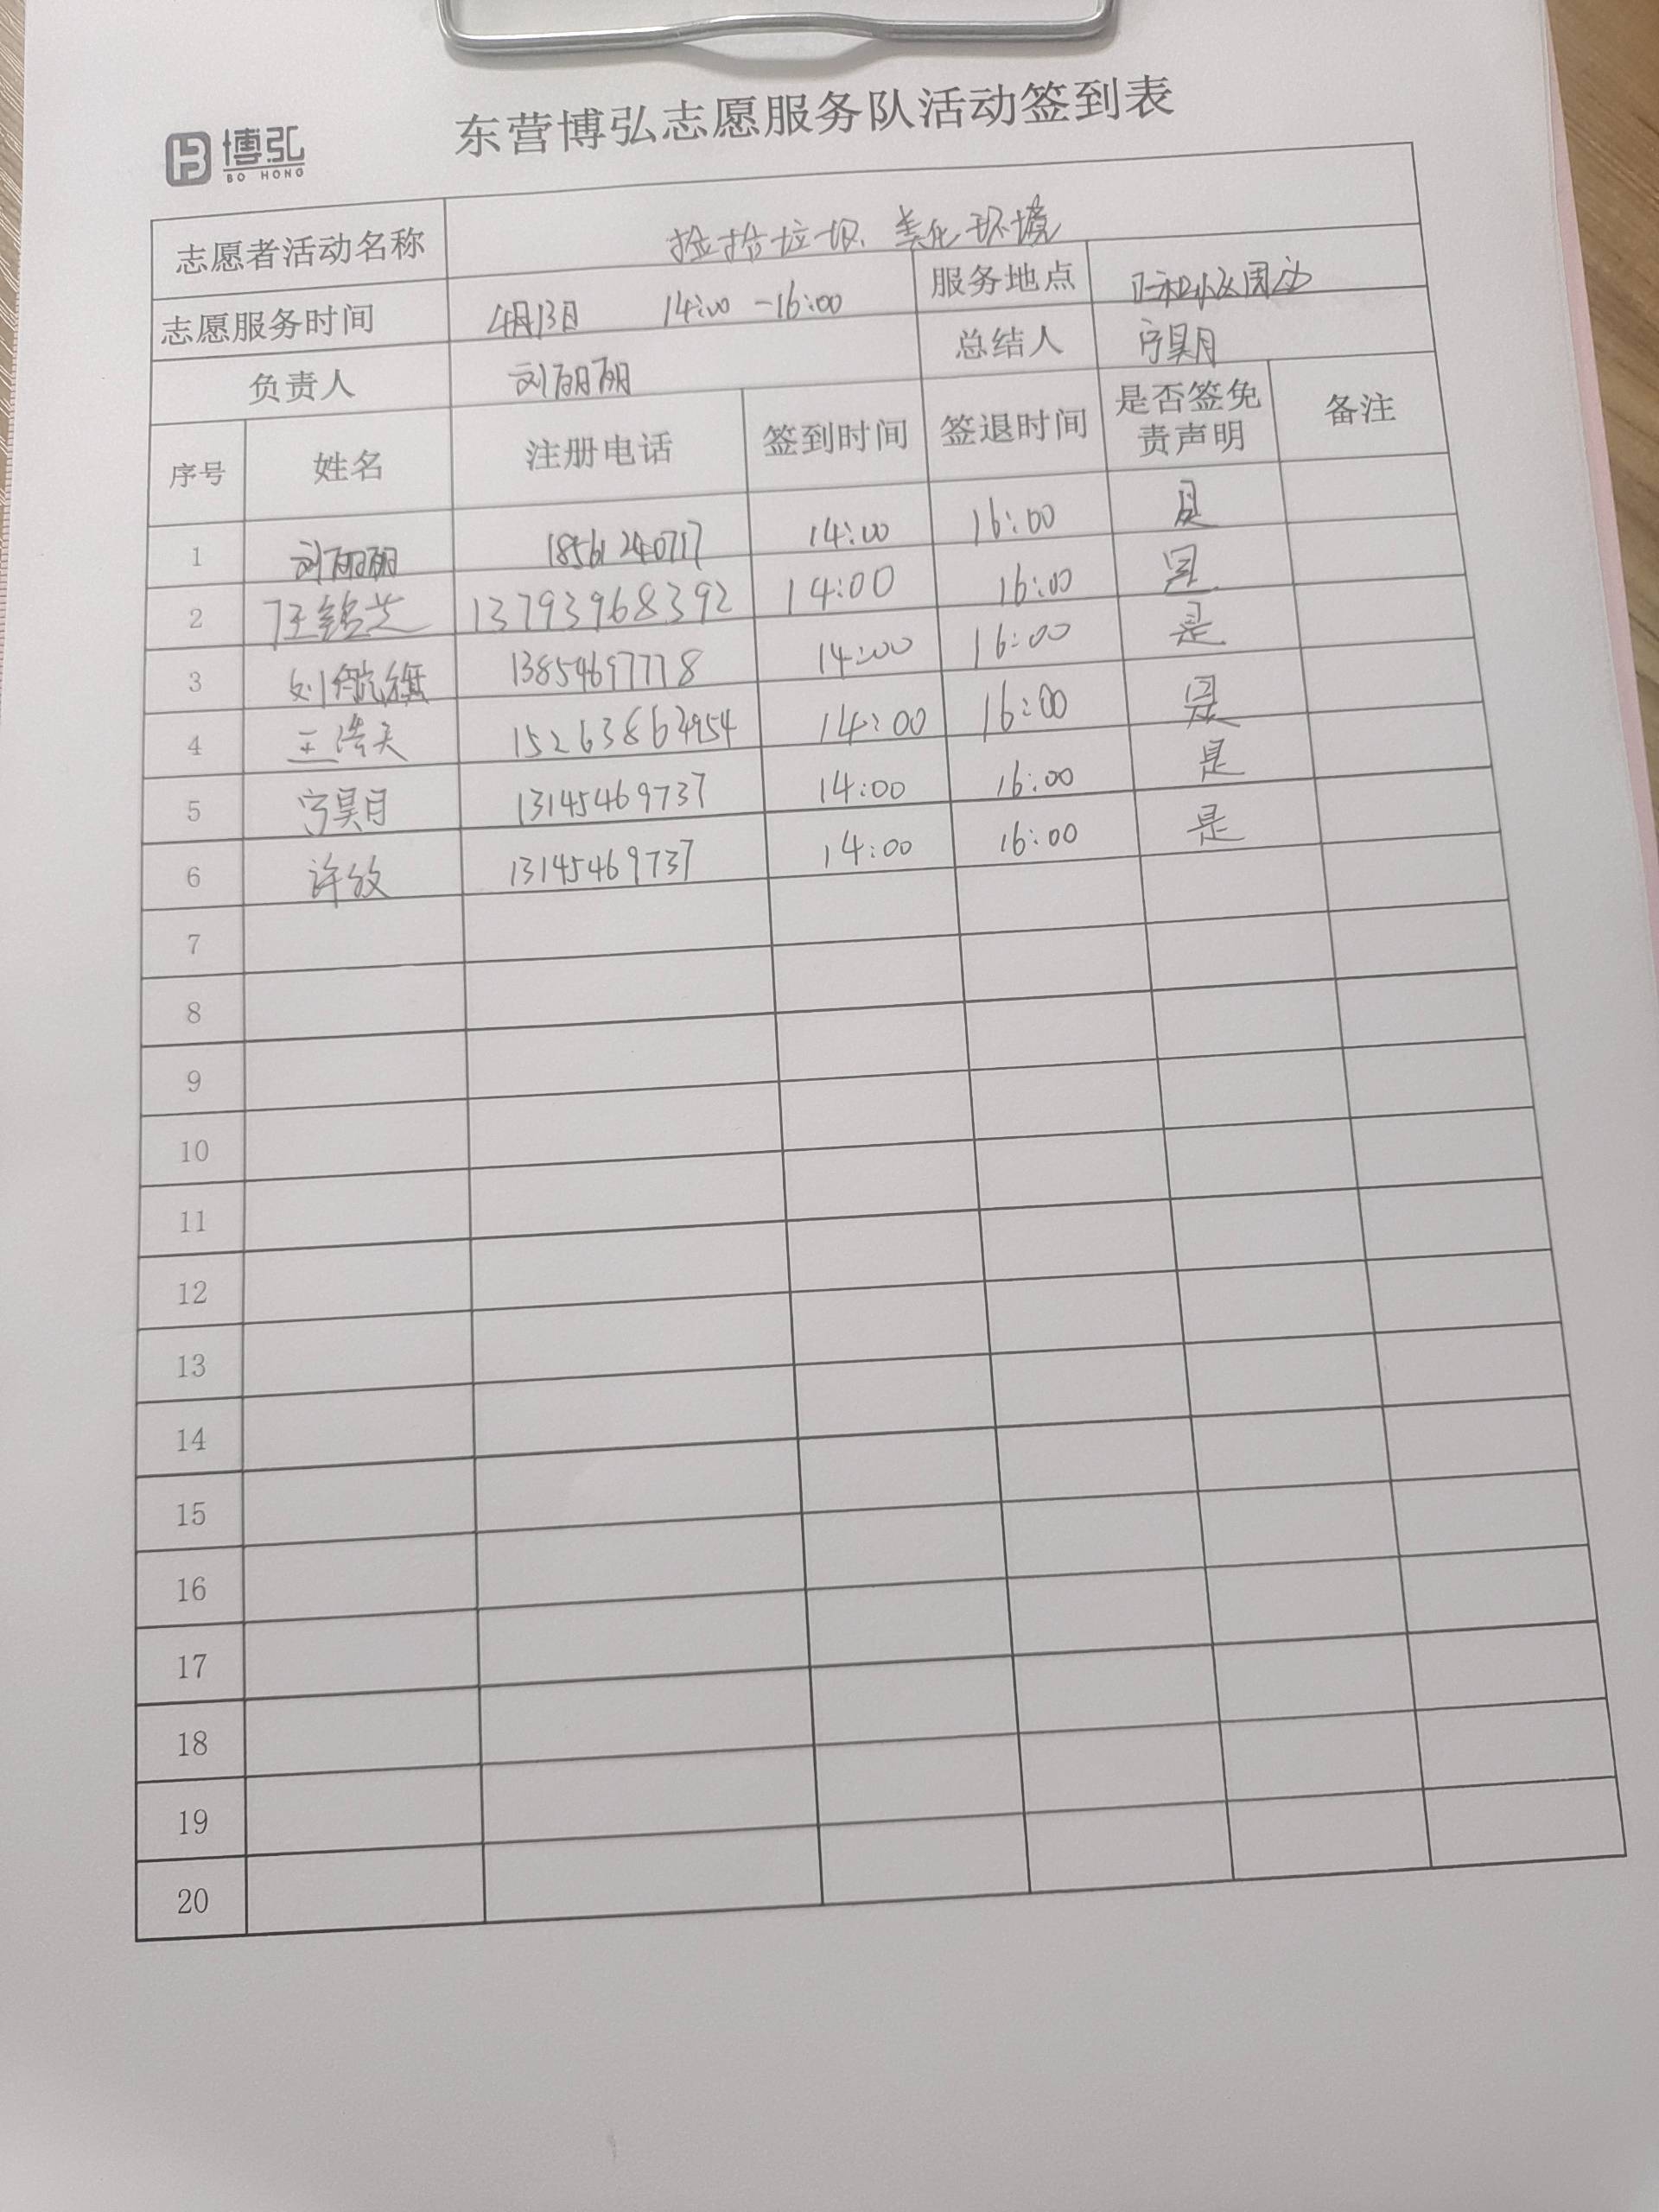 博弘
BO HONG
东营博弘志愿服务队活动签到表
志愿者活动名称 捡拾垃圾、美化环境
志愿服务时间 4月13日 14:00-16:00 服务地点 小区周边
负责人 刘丽丽 总结人 宁昊月
序号 姓名 注册电话 签到时间 签退时间 是否签免责声明 备注
1 刘丽丽 18561240717 14:00 16:00 是
2 汪铭芝 13793968392 14:00 16:00 是
3 刘航 13854697778 14:00 16:00 是
4 王浩天 15263862954 14:00 16:00 是
5 宁昊月 13145469737 14:00 16:00 是
6 许放 13145469737 14:00 16:00 是
7
8
9
10
11
12
13
14
15
16
17
18
19
20